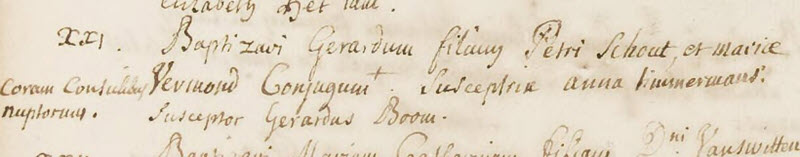 Elizabeth Het
XXI. Baptizavi Gerardum filium Petri Schout, et mariæ
Coram Consulibus Vermond Conjugum†. Susceptrix anna timmermans.
nuptorum. Susceptor Gerardus Boom.
Baptizavi Mariam Catharinam filiam Dni Vanswitten